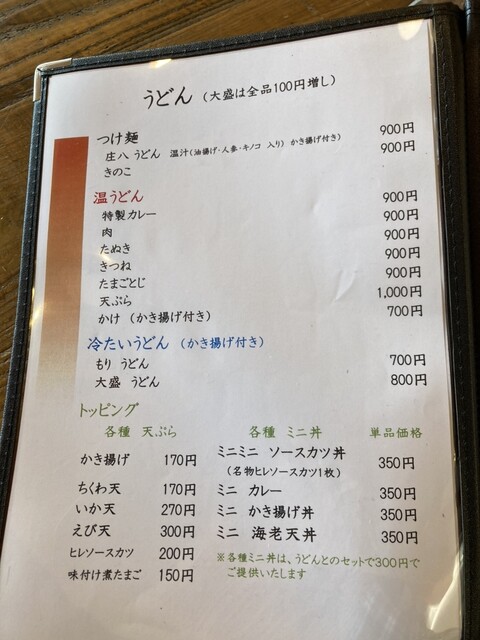 うどん （大盛は全品100円増し）
つけ麺
庄八 うどん 温汁(油揚げ・人参・キノコ 入り) かき揚げ付き） 900円
きのこ 900円
温うどん
特製カレー 900円
肉 900円
たぬき 900円
きつね 900円
たまごとじ 900円
天ぷら 1,000円
かけ （かき揚げ付き） 700円
冷たいうどん （かき揚げ付き）
もり うどん 700円
大盛 うどん 800円
トッピング
各種 天ぷら
かき揚げ 170円
ちくわ天 170円
いか天 270円
えび天 300円
ヒレソースカツ 200円
味付け煮たまご 150円
各種 ミニ丼 単品価格
ミニミニ ソースカツ丼 350円
（名物ヒレソースカツ1枚）
ミニ カレー 350円
ミニ かき揚げ丼 350円
ミニ 海老天丼 350円
※各種ミニ丼は、うどんとのセットで300円で
ご提供いたします